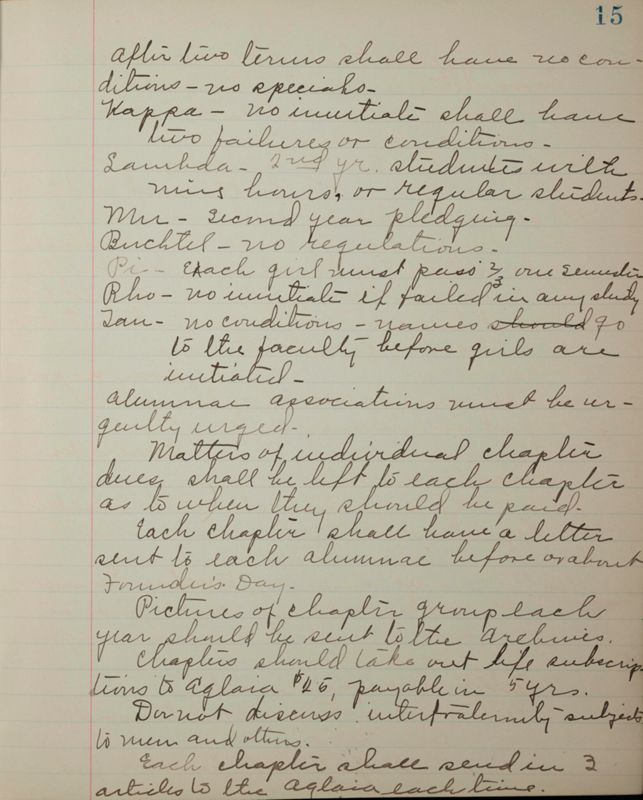 15
After two terms shall have no con-
ditions - no specials -
Kappa - no innitiate shall have
two failures or conditions -
Lambda - 2nd yr. students with
nine hours, or regular students.
Mu - Second year pledging -
Buchtel - no regulations -
Pi - Each girl must pass 2/3 one semester
Rho - no innitiate if failed in any study
Tau - no conditions - names should go
to the faculty before girls are
initiated -
Alumnae associations must be ur-
gently urged -
Matters of individual chapter
dues shall be left to each chapter
as to when they should be paid.
Each chapter shall have a letter
sent to each alumnae before or about
Founder's Day -
Pictures of chapter group each
year should be sent to the Archives.
Chapters should take out life subscrip-
tions to Aglaia $25, payable in 5 yrs.
Do not discuss interfraternity subjects
to men and others.
Each chapter shall send in 3
articles to the Aglaia each time.